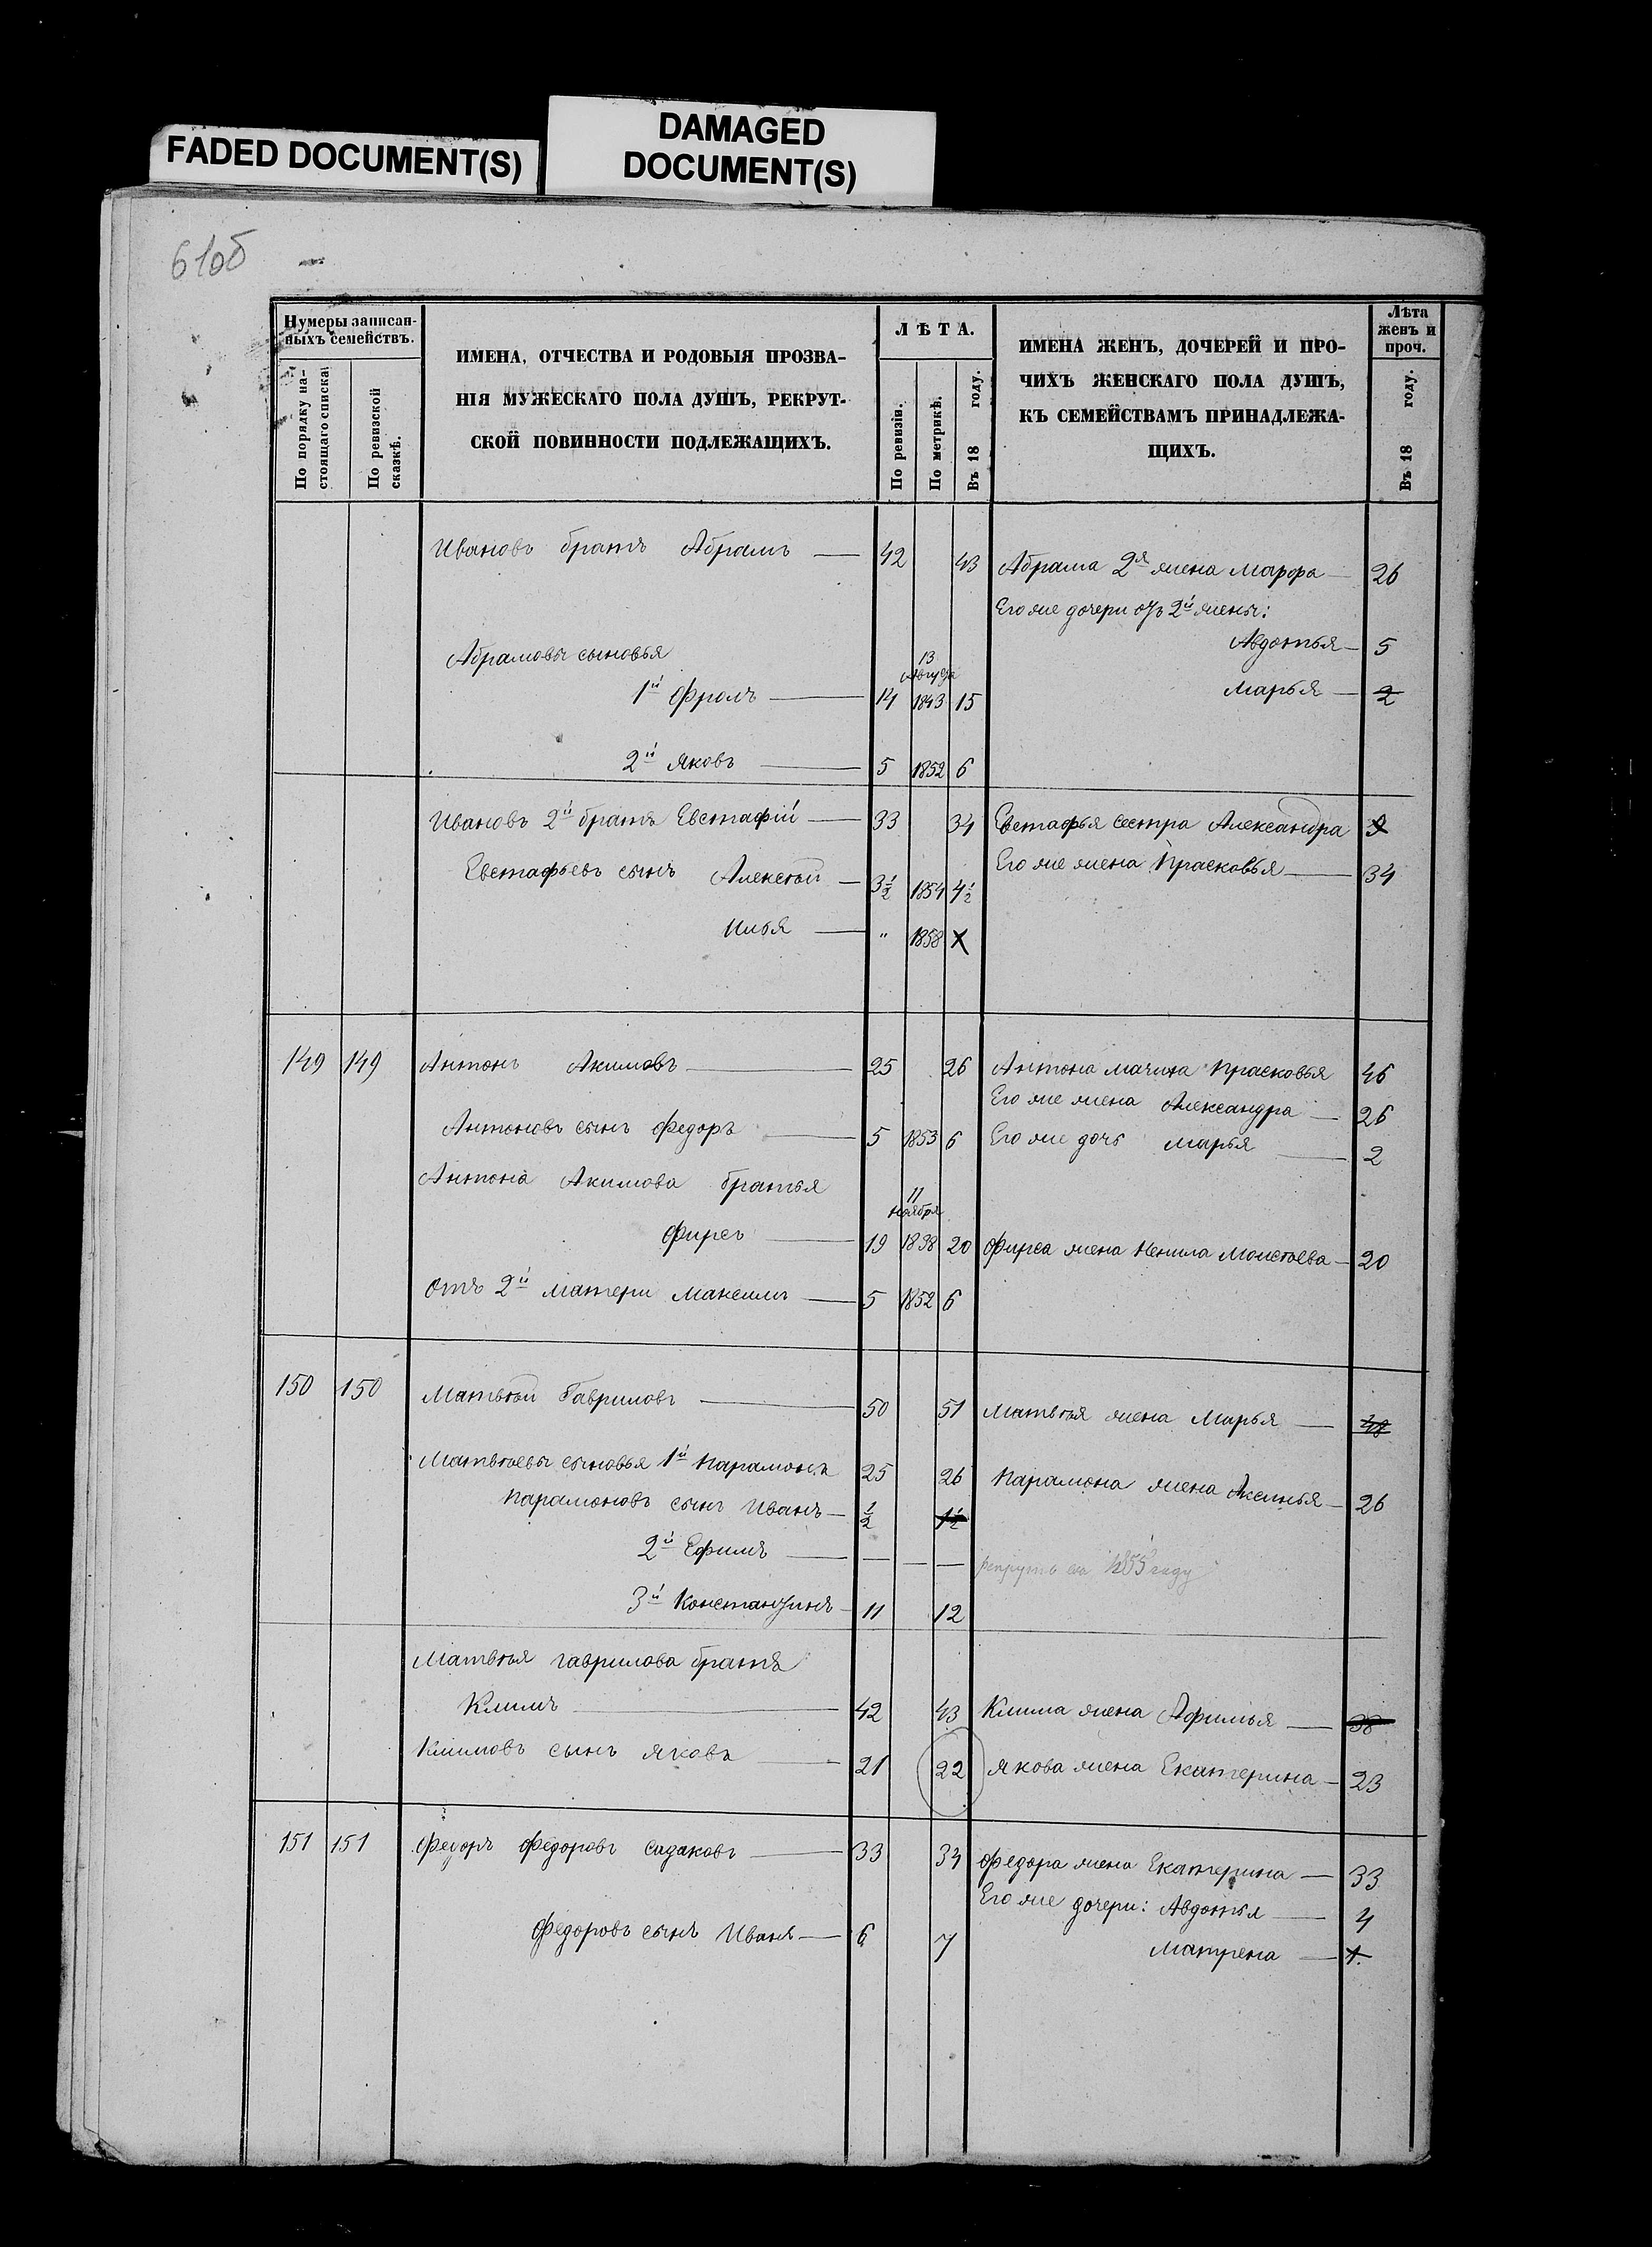 FADED DOCUMENT(S)
DAMAGED
DOCUMENT(S)
61об
Нумеры записан-
ныхъ семействъ.
По порядку на-
стоящаго списка.
По ревизской
сказкѣ.
ИМЕНА, ОТЧЕСТВА И РОДОВЫЯ ПРОЗВА-
НІЯ МУЖЕСКАГО ПОЛА ДУШЪ, РЕКРУТ-
СКОЙ ПОВИННОСТИ ПОДЛЕЖАЩИХЪ.
ЛѢТА.
По ревизіи.
По метрикѣ.
Въ 18 году.
ИМЕНА ЖЕНЪ, ДОЧЕРЕЙ И ПРО-
ЧИХЪ ЖЕНСКАГО ПОЛА ДУШЪ,
КЪ СЕМЕЙСТВАМЪ ПРИНАДЛЕЖА-
ЩИХЪ.
Лѣта
женъ и
проч.
Въ 18 году.
Ивановъ братъ Абрамъ — 42 43 Абрама 2я жена Марфа — 26
Его же дочери отъ 2й жены:
Авдотья — 5
Абрамовы сыновья
13
Августа
1й Фролъ — 14 1843 15 Марья — 2
2й Яковъ — 5 1852 6
Ивановъ 2й братъ Евстафій — 33 34 Евстафья сестра Александра
Евстафьевъ сынъ Алексѣй — 3½ 1854 4½ Его же жена Прасковья — 34
Илья — " 1858
149 149 Антонъ Акимовъ — 25 26 Антона мачиха Прасковья 46
Его же жена Александра — 26
Антоновъ сынъ Федоръ — 5 1853 6 Его же дочь Марья — 2
Антона Акимова братья
11
Ноября
Фирсъ — 19 1838 20 Фирса жена Ненила Моисѣева — 20
Отъ 2й матери Максимъ — 5 1852 6
150 150 Матвѣй Гавриловъ — 50 51 Матвѣя жена Марья —
Матвѣевы сыновья 1й Парамонъ 25 26 Парамона жена Аксинья — 26
Парамоновъ сынъ Иванъ — ½ 1½
2й Ефимъ — — — — рекрутъ въ 1855 году
3й Константинъ — 11 12
Матвѣя Гаврилова братъ
Климъ — 42 43 Клима жена Афимья — 38
Климовъ сынъ Яковъ — 21 22 Якова жена Екатерина — 23
151 151 Федоръ Федоровъ Садаковъ — 33 34 Федора жена Екатерина — 33
Его же дочери: Авдотья — 4
Федоровъ сынъ Иванъ — 6 7 Матрена — 1.